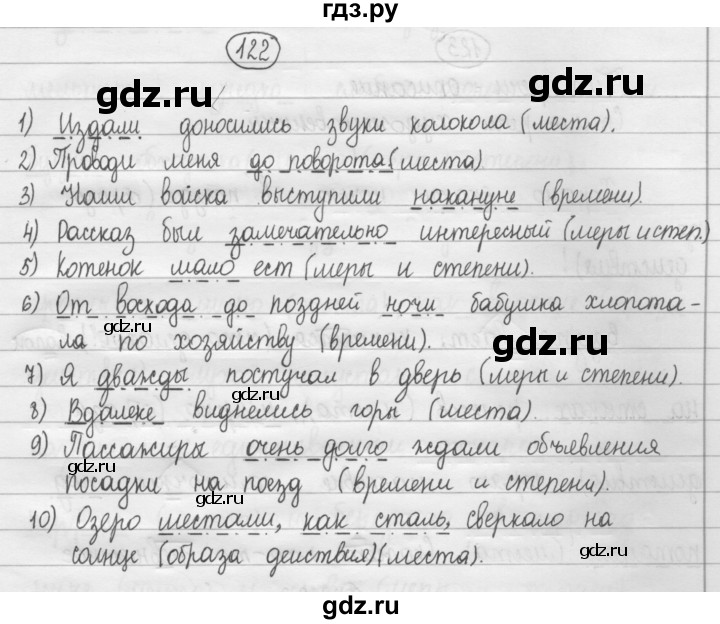 гдз.ру
122
gdz.ru gdz.ru
1) Издали доносились звуки колокола (места).
2) Проводи меня до поворота (места).
3) Наши войска выступили накануне (времени).
4) Рассказ был замечательно интересный (меры и степ.)
5) Котенок мало ест (меры и степени).
gdz.ru
6) От восхода до поздней ночи бабушка хлопота-
gdz.ru gdz.ru
ла по хозяйству (времени).
7) Я дважды постучал в дверь (меры и степени).
8) Вдалеке виднелись горы (места).
gdz.ru
9) Пассажиры очень долго ждали объявления
gdz.ru
посадки на поезд (времени и степени).
gdz.ru
10) Озеро местами, как сталь, сверкало на
gdz.ru
солнце (образа действия)(места).
gdz.ru